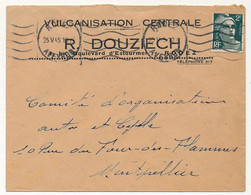 VULGANISATION CENTRALE
R. DOUZIECH
Boulevard d'Estourmel - RODEZ
TÉLÉPHONE
RF
Comité d'organisation
autos et Cycles
10 Rue du Four-des-Flammes
Montpellier